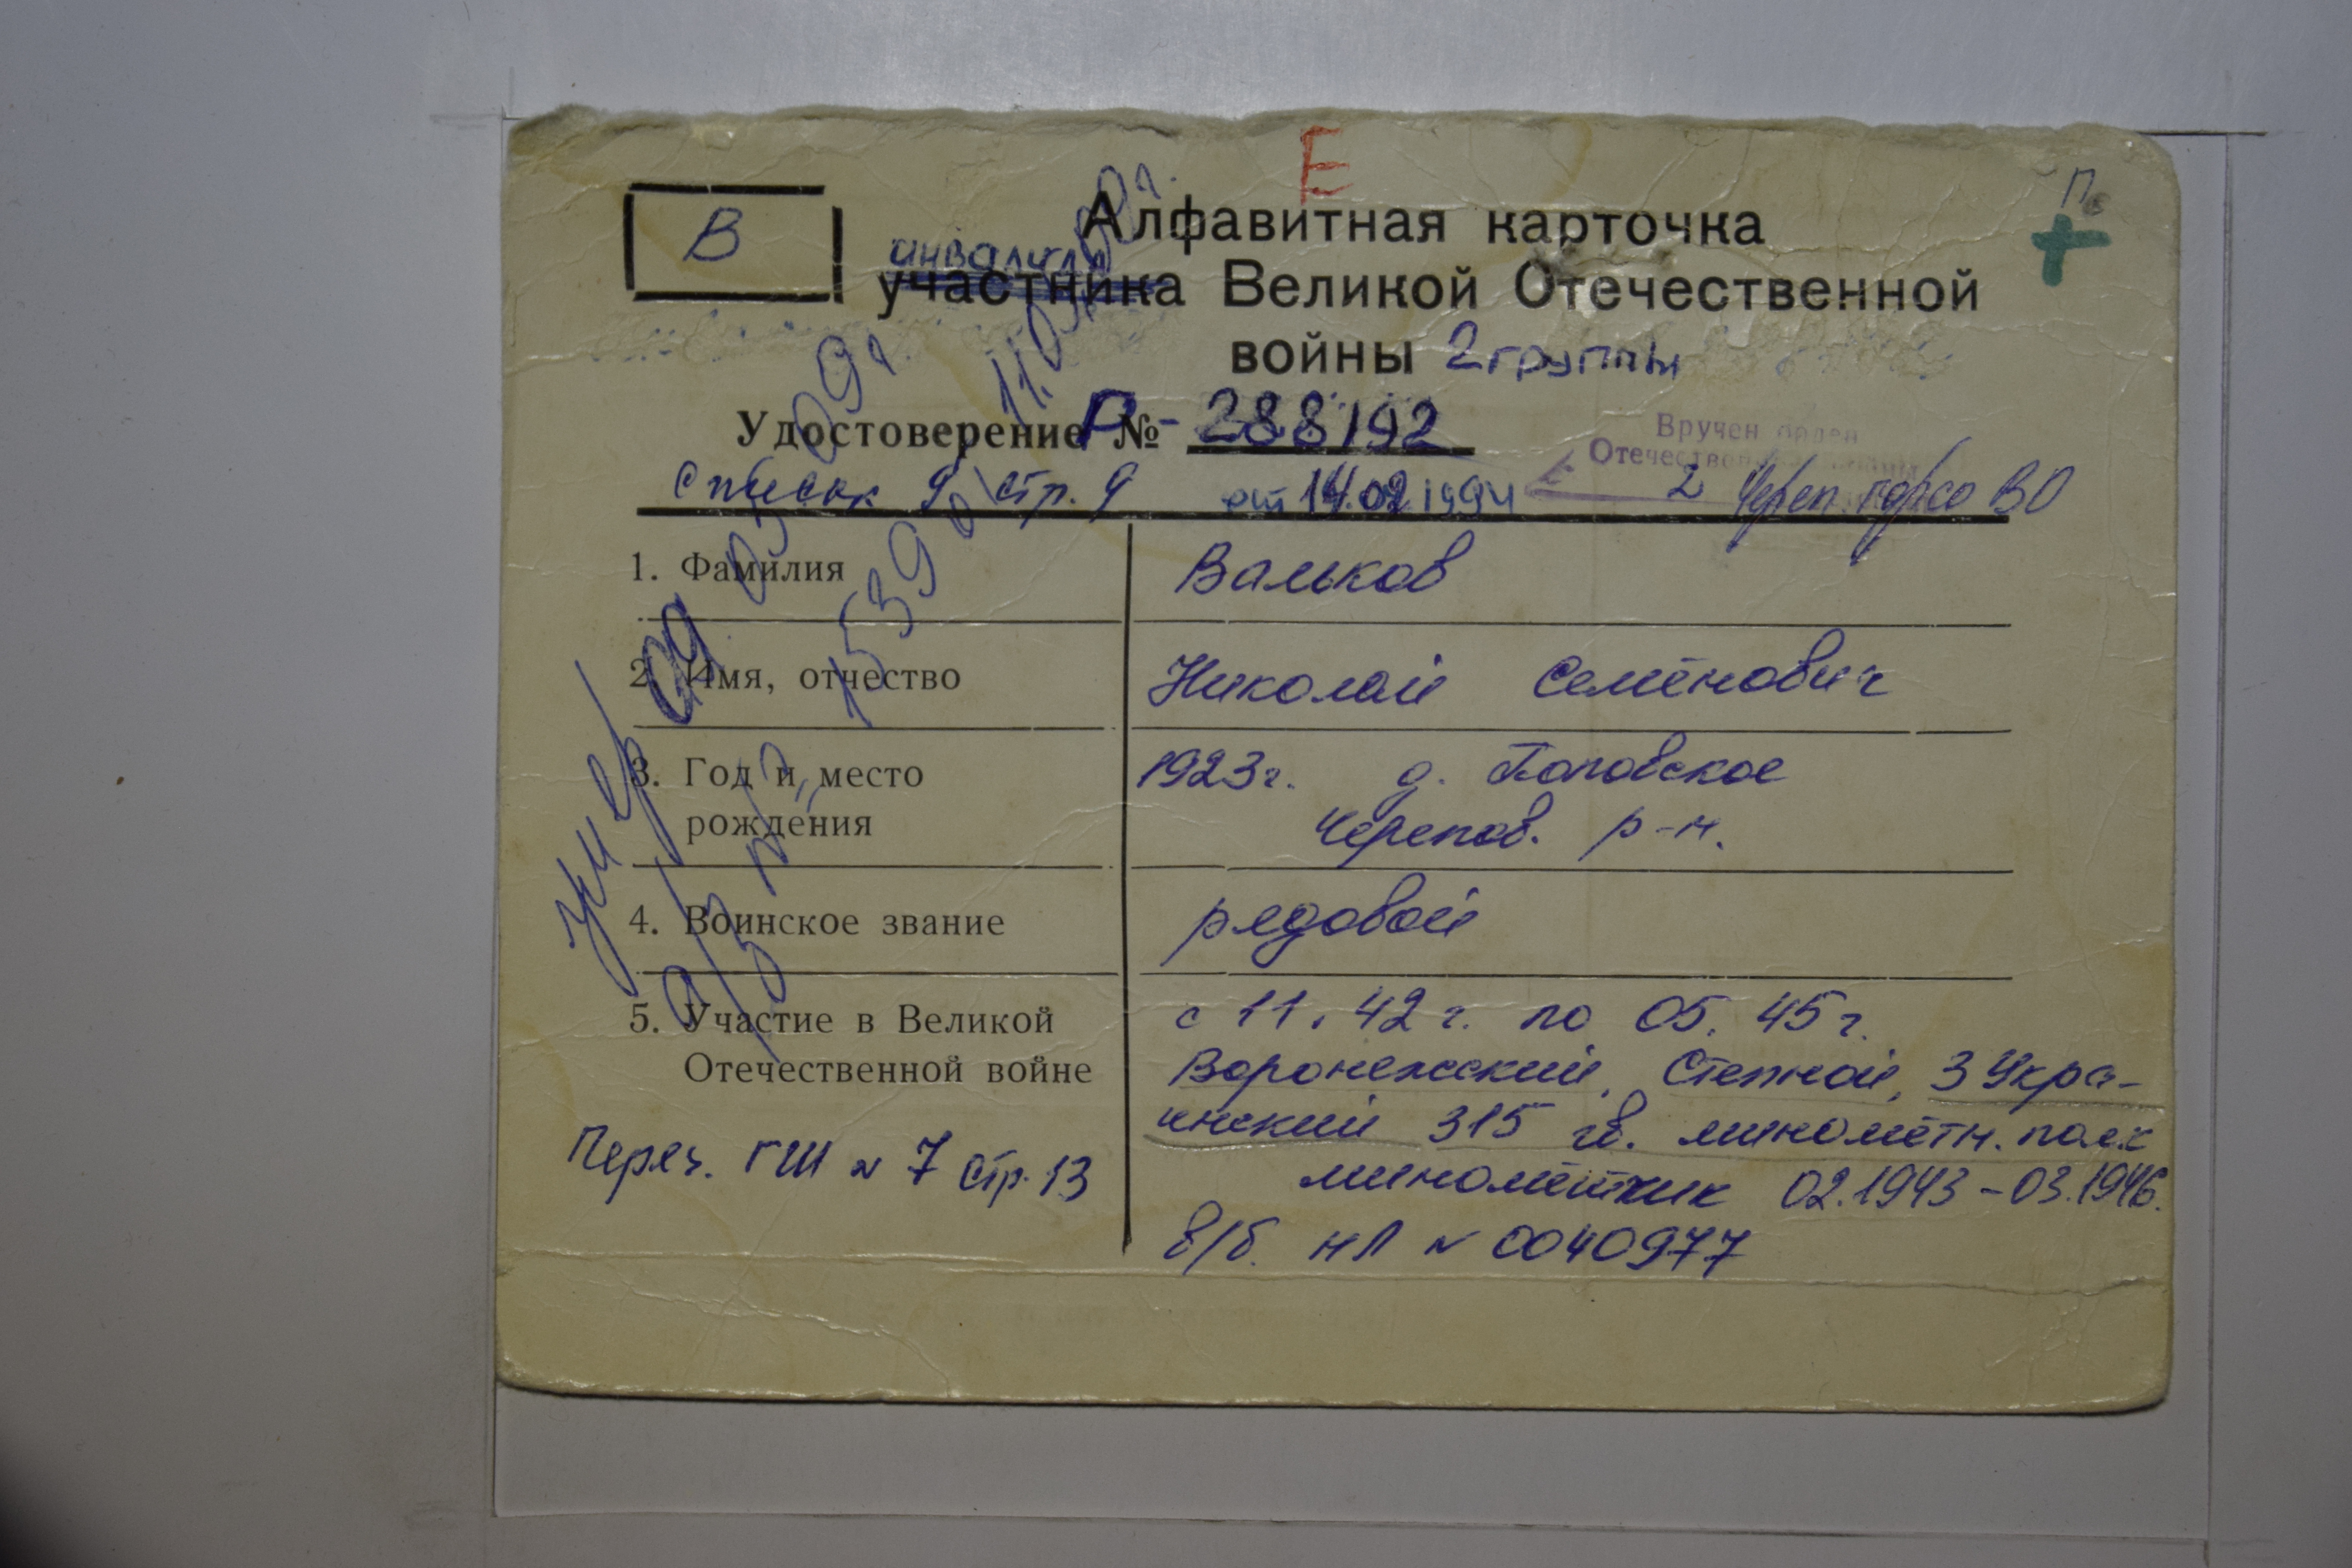 Е
В
Алфавитная карточка
инвалида
участника Великой Отечественной
войны 2 группы
Удостоверение Р №- 288192
Вручен орден
Отечественной войны
список 9 стр. 9 от 14.02.1994 2 Череп. горсо ВО
1. Фамилия Вальков
2. Имя, отчество Николай Семёнович
3. Год и место 1923г. д. Поповское
рождения Черепов. р-н.
4. Воинское звание рядовой
5. Участие в Великой с 11. 42 г. по 05. 45 г.
Отечественной войне Воронежский, Степной, 3 Укра-
инский 315 гв. минометн. полк
Переч. ГШ № 7 стр. 13 минометчик 02.1943 - 03.1946.
в/б. НЛ № 0040977
умер